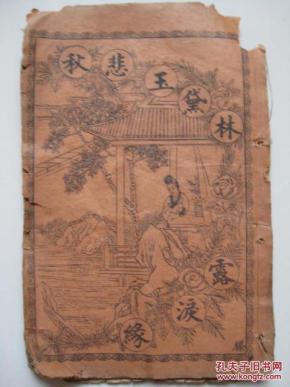 林黛玉悲秋
露淚緣
孔夫子旧书网